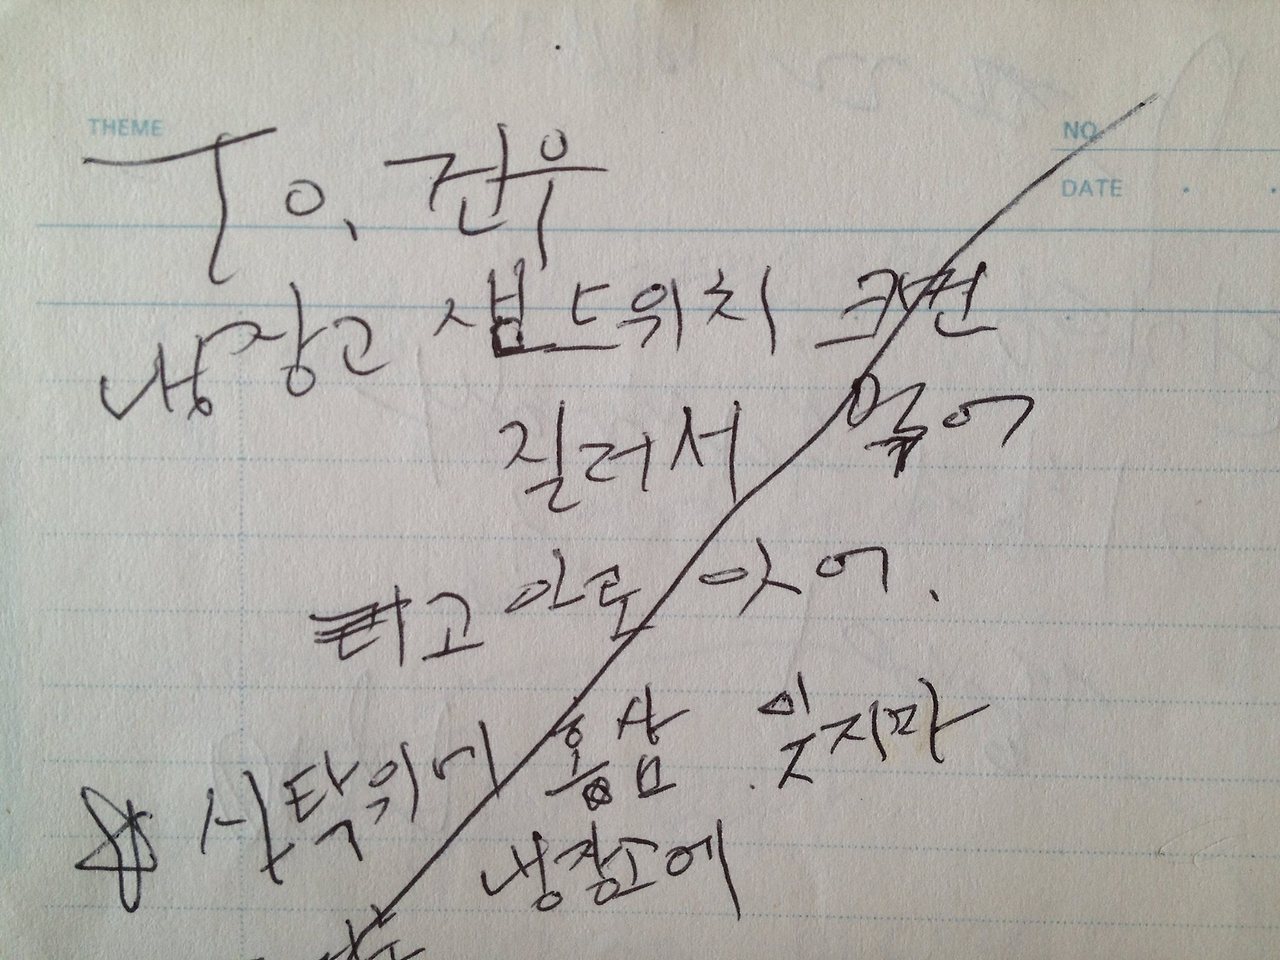 THEME
NO.
DATE
To. 건우
냉장고 샌드위치 크면
질러서 먹어
고 아로 있어.
식탁위에 홍삼 잊지마
냉장고에